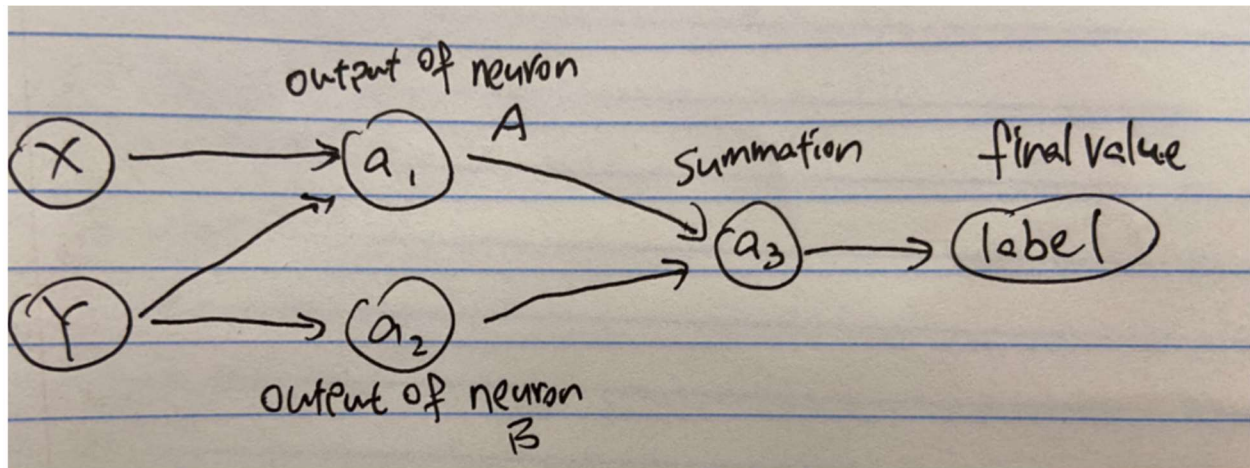 output of neuron
A
X
a₁
summation
final value
a₃
label
Y
a₂
output of neuron
B